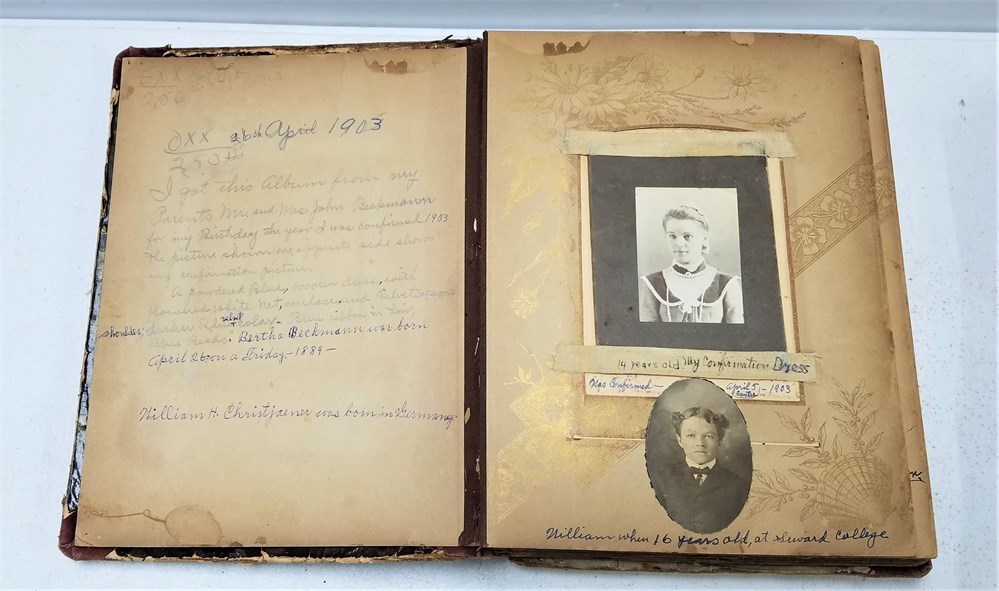 26th April 1903
250
I got this Album from my
Parents Mr. and Mrs John Beckmann
for my Birthday the year I was confirmed 1903
The picture shown on opposite side shows
my confirmation picture.
A powdered Blue, woolen dress, with
flowered white net, overlace, and Velvet
shoulder, darker Blue velvet colar. Blue ribbon in hair,
Blue Beads. Bertha Beckmann was born
April 26, on a Friday - 1889 -
William H. Christjaener was born in Germany.
14 years old My Confirmation Dress
Was Confirmed - April 5 - 1903
Easter
William when 16 years old, at Seward College